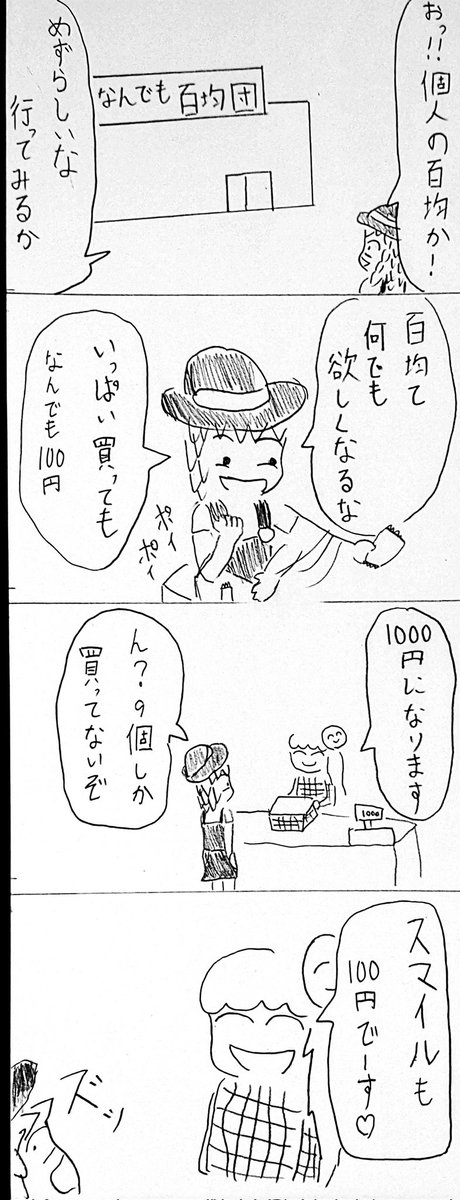 おっ!!個人の百均か!
なんでも百均団
めずらしいな
行ってみるか
百均て
何でも
欲しくなるな
いっぱい買っても
なんでも100円
ポイ
ポイ
1000円になります
1000
ん?9個しか
買ってないぞ
スマイルも
100円でーす♡
ズッ